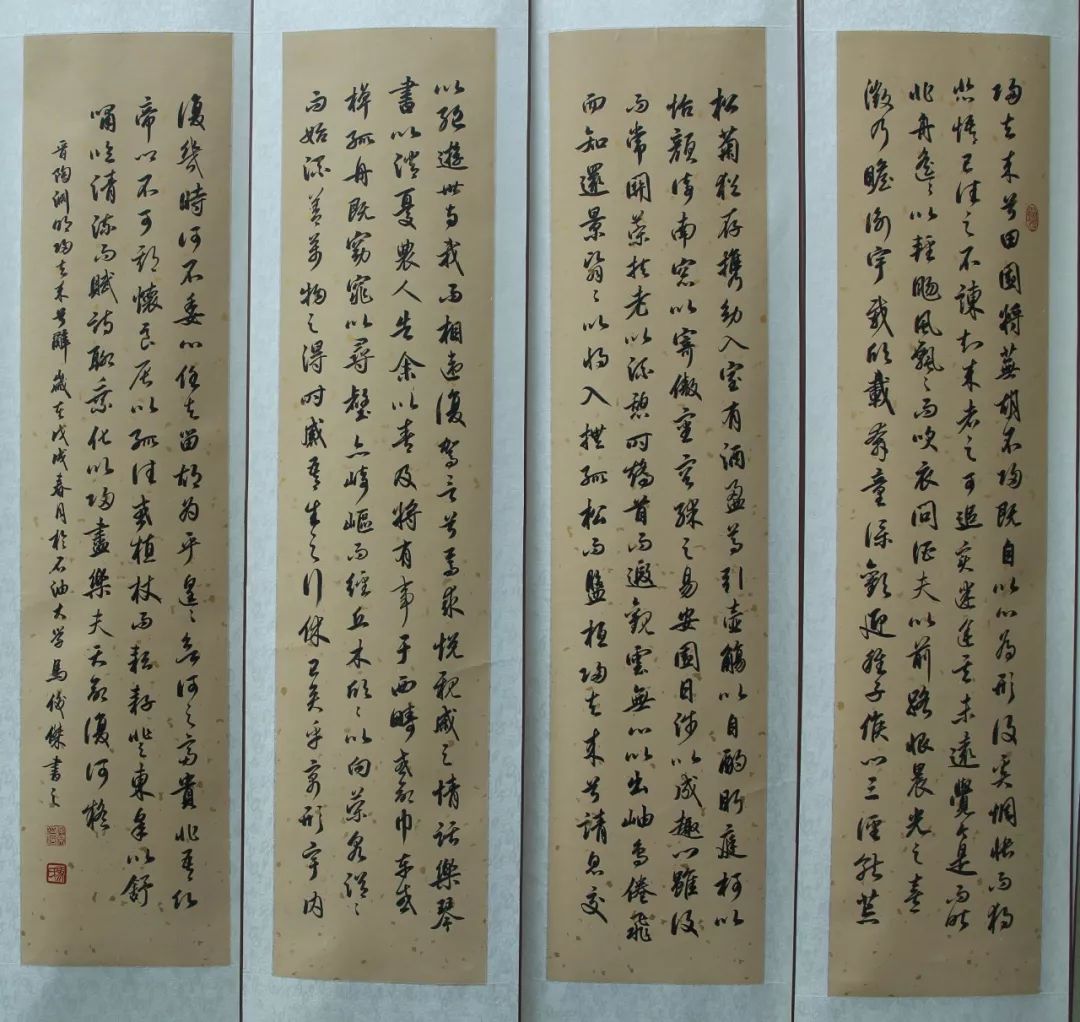 歸去来兮田園將蕪胡不歸既自以心為形役奚惆悵而獨
悲悟已往之不諫知来者之可追實迷途其未遠覺今是而昨
非舟遥〻以輕颺風飄〻而吹衣問征夫以前路恨晨光之熹
微乃瞻衡宇載欣載奔童僕歡迎稚子候門三徑就荒
松菊猶存攜幼入室有酒盈尊引壺觴以自酌眄庭柯以
怡顏倚南窗以寄傲審容膝之易安園日涉以成趣門雖設
而常關策扶老以流憩時矯首而遐觀雲無心以出岫鳥倦飛
而知還景翳〻以將入撫孤松而盤桓歸去来兮請息交
以絕遊世與我而相違復駕言兮焉求悅親戚之情話樂琴
書以消憂農人告余以春及將有事于西疇或命巾車或
棹孤舟既窈窕以尋壑亦崎嶇而經丘木欣〻以向榮泉涓〻
而始流善萬物之得時感吾生之行休已矣乎寓形宇内
復幾時何不委心任去留胡為乎遑〻欲何之富貴非吾願
帝鄉不可期懷良辰以孤往或植杖而耘耔登東皋以舒
嘯臨清流而賦詩聊乘化以歸盡樂夫天命復何疑
晋陶渊明歸去来兮辭歲在戊戌春月於石油大学馬儀傑書之